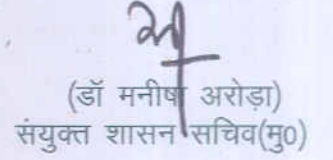 (डॉ मनीषा अरोड़ा)
संयुक्त शासन सचिव(मु0)